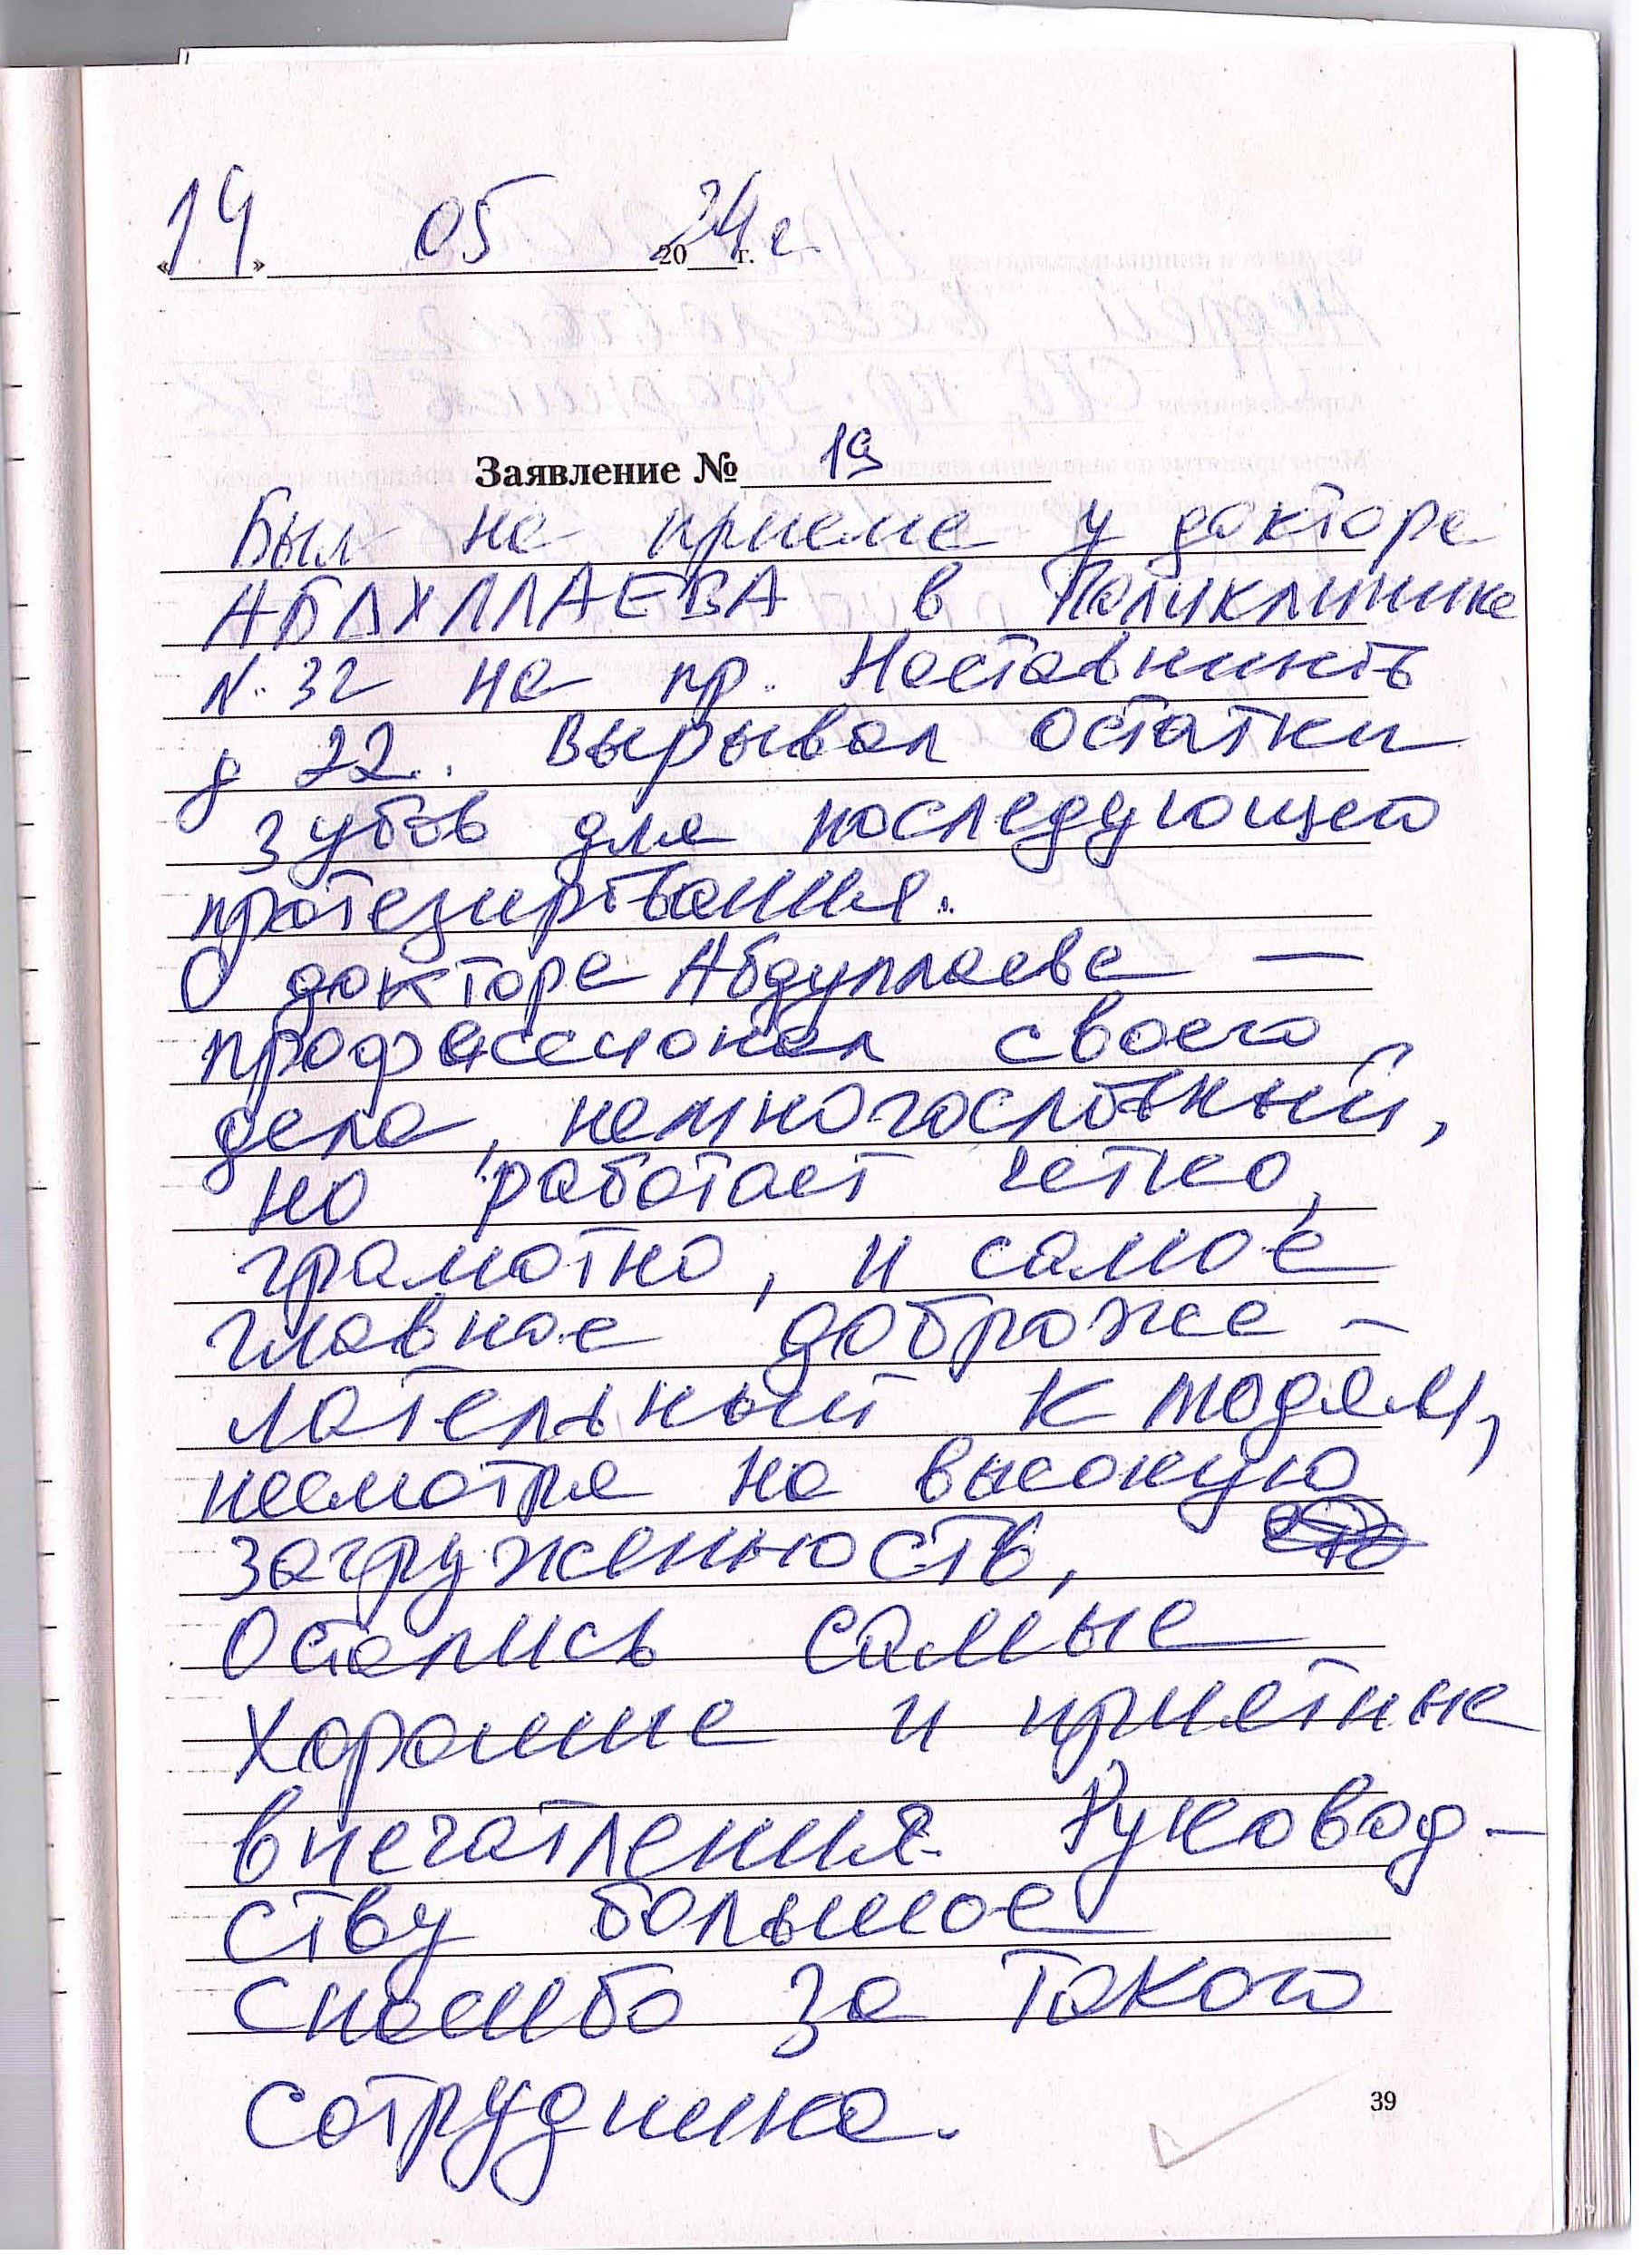 «14» 05 2024г.
Заявление № 19
Был на приеме у доктора
АБДУЛЛАЕВА в Поликлинике
N. 32 на пр. Наставников
д 22. Вырывал остатки
зубов для последующего
протезирования.
О докторе Абдуллаеве —
профессионал своего
дела, немногословный,
но работает четко,
грамотно, и самое
главное доброже-
лательный к людям,
несмотря на высокую
загруженность,
Остались самые
хорошие и приятные
впечатления. Руковод-
ству большое
спасибо за такого
сотрудника.
39